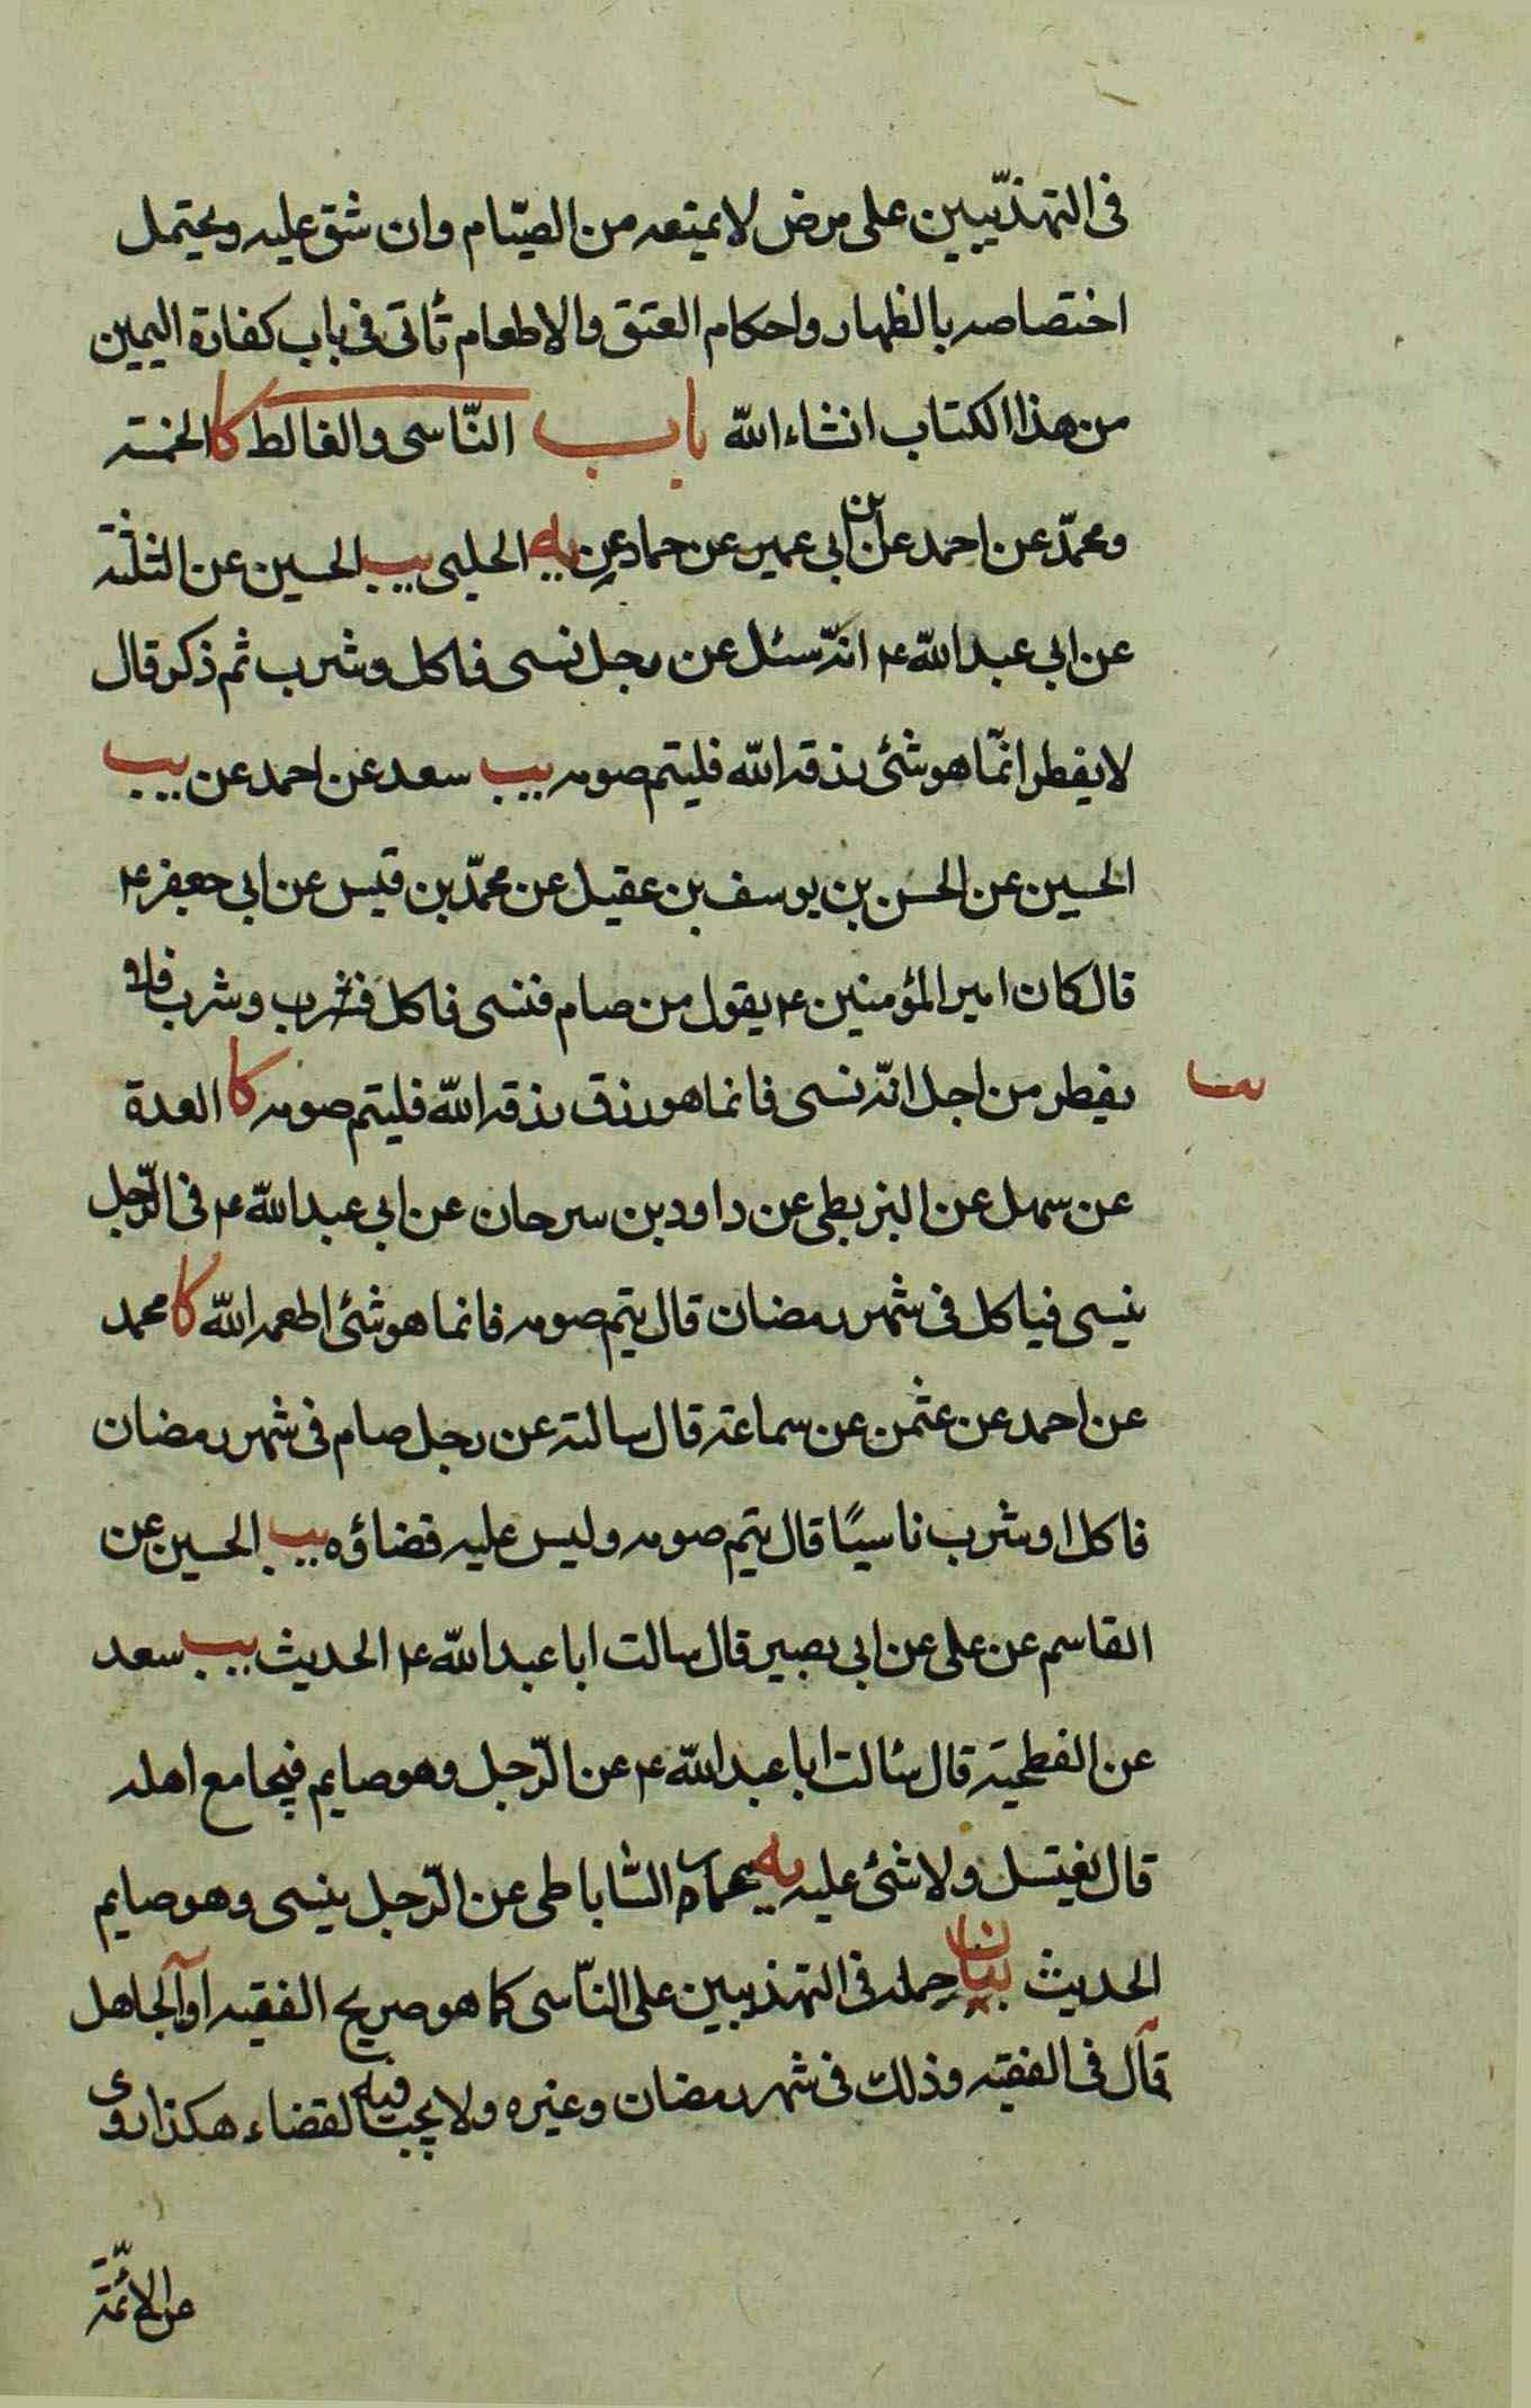 فى التهذيبين على مرض لا يمنعه من الصّيام وان شق عليه ويحتمل
اختصاصه بالظهار واحكام العتق والاطعام تأتى فى باب كفارة اليمين
من هذا الكتاب انشاء الله باب النّاسى والغالط كا الخمسة
ومحمّد عن احمد عن ابن ابى عمير عن حماد عن يه الحلبى يب الحسين عن الثلثة
عن ابى عبد الله ع انّه سئل عن رجل نسى فاكل وشرب ثم ذكر قال
لا يفطر انّما هو شئ رزقه الله فليتم صومه يب سعد عن احمد عن يب
الحسين عن الحسن بن يوسف بن عقيل عن محمّد بن قيس عن ابى جعفر ع
قال كان امير المؤمنين ع يقول من صام فنسى فاكل فشرب وشرب فلا
يفطر من اجل انّه نسى فانما هو رزق رزقه الله فليتم صومه كا العدة
عن سهل عن البزنطى عن داود بن سرحان عن ابى عبد الله ع فى الرّجل
ينسى فياكل فى شهر رمضان قال يتم صومه فانما هو شئ اطعمه الله كا محمد
عن احمد عن عثمن عن سماعة قال سالته عن رجل صام فى شهر رمضان
فاكل او شرب ناسيًا قال يتم صومه وليس عليه قضاؤه يب الحسين عن
القاسم عن على عن ابى بصير قال سالت ابا عبد الله ع الحديث يب سعد
عن الفطحية قال سئالت ابا عبد الله ع عن الرّجل وهو صايم فيجامع اهله
قال يغتسل ولا شئ عليه يه عمار السّاباطى عن الرّجل ينسى وهو صايم
الحديث بيان حمله فى التهذيبين على النّاسى كما هو صريح الفقيه او الجاهل
قال فى الفقيه وذلك فى شهر رمضان وغيره ولا يجب فيه القضاء هكذا روى
عن الائمّة